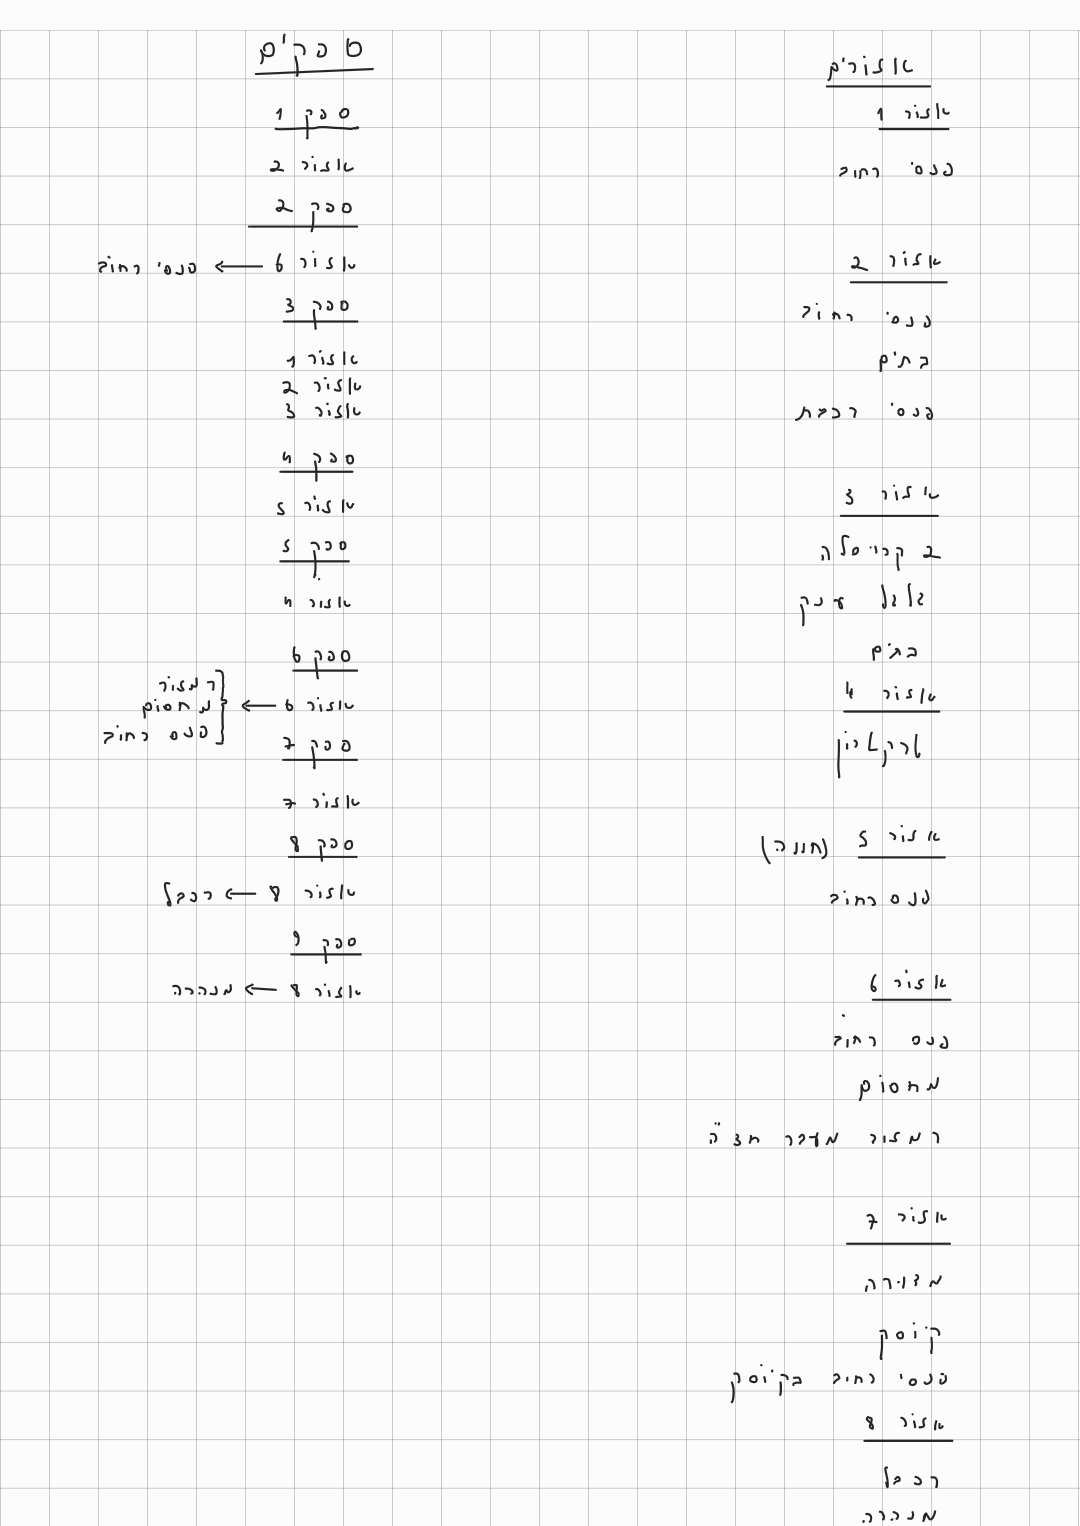 אזורים
אזור 1
פנסי רחוב
אזור 2
פנסי רחוב
בתים
פנסי רכבת
אזור 3
2 קרוסלה
גלגל ענק
בתים
אזור 4
טרקטורון
אזור 5 (חווה)
פנס רחוב
אזור 6
פנס רחוב
מחסום
רמזור מעבר חציה
אזור 7
מצורה
קיוסק
פנסי רחוב בקיוסק
אזור 8
רכבל
מנהרה
ספקים
ספק 1
אזור 2
ספק 2
אזור 6 ← פנסי רחוב
ספק 3
אזור 1
אזור 2
אזור 3
ספק 4
אזור 5
ספק 5
אזור 4
ספק 6
רמזור
אזור 6 ← מחסום
פנס רחוב
ספק 7
אזור 7
ספק 8
אזור 8 ← רכבל
ספק 9
אזור 8 ← מנהרה